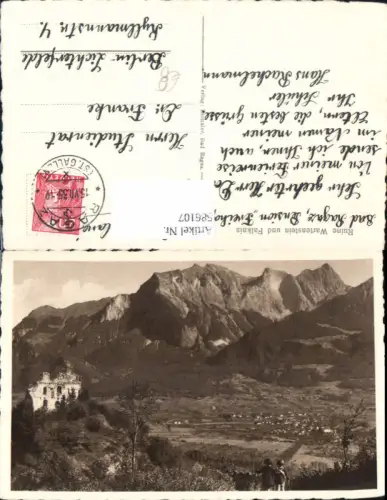 Ruine Wartenstein und Falknis
Bad Ragaz, Pension
Sehr geehrter Herr Dr.
Von meiner Ferienreise
sende ich Ihnen, auch
im Namen meiner
Eltern, die besten Grüsse.
Ihr Schüler
Hans Rachelmann
Verlag
Bad Ragaz
Artikel Nr.
586107
RAGAZ
(ST. GALLEN)
Herrn Studienrat
Dr. Franke
Berlin-Lichterfelde
Kyllmannstr. 4